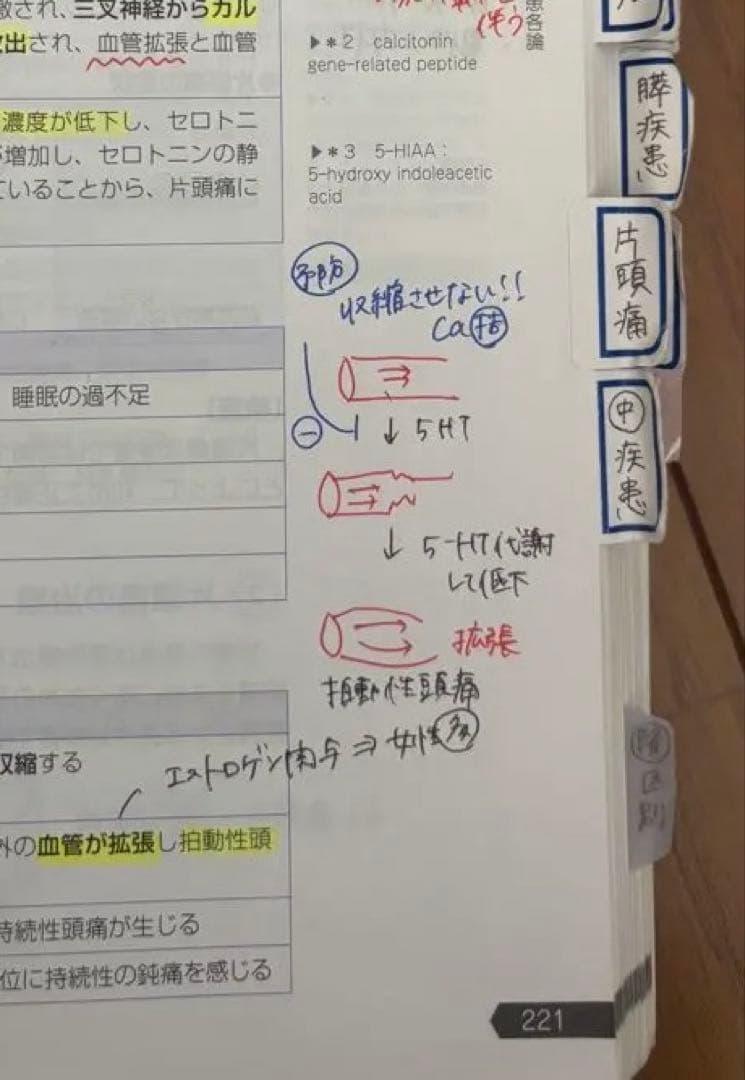 激され、三叉神経からカル
放出され、血管拡張と血管
濃度が低下し、セロトニ
増加し、セロトニンの静
ていることから、片頭痛に
伴う
患各論
▶*2 calcitonin
gene-related peptide
▶*3 5-HIAA:
5-hydroxy indoleacetic
acid
予防
収縮させない!!
Ca拮
睡眠の過不足
⊖ ↓ 5HT
↓ 5-HT代謝
して低下
拡張
拍動性頭痛
収縮する
エストロゲン関与⇒女性多
外の血管が拡張し拍動性頭
持続性頭痛が生じる
位に持続性の鈍痛を感じる
221
膵疾患
片頭痛
中疾患